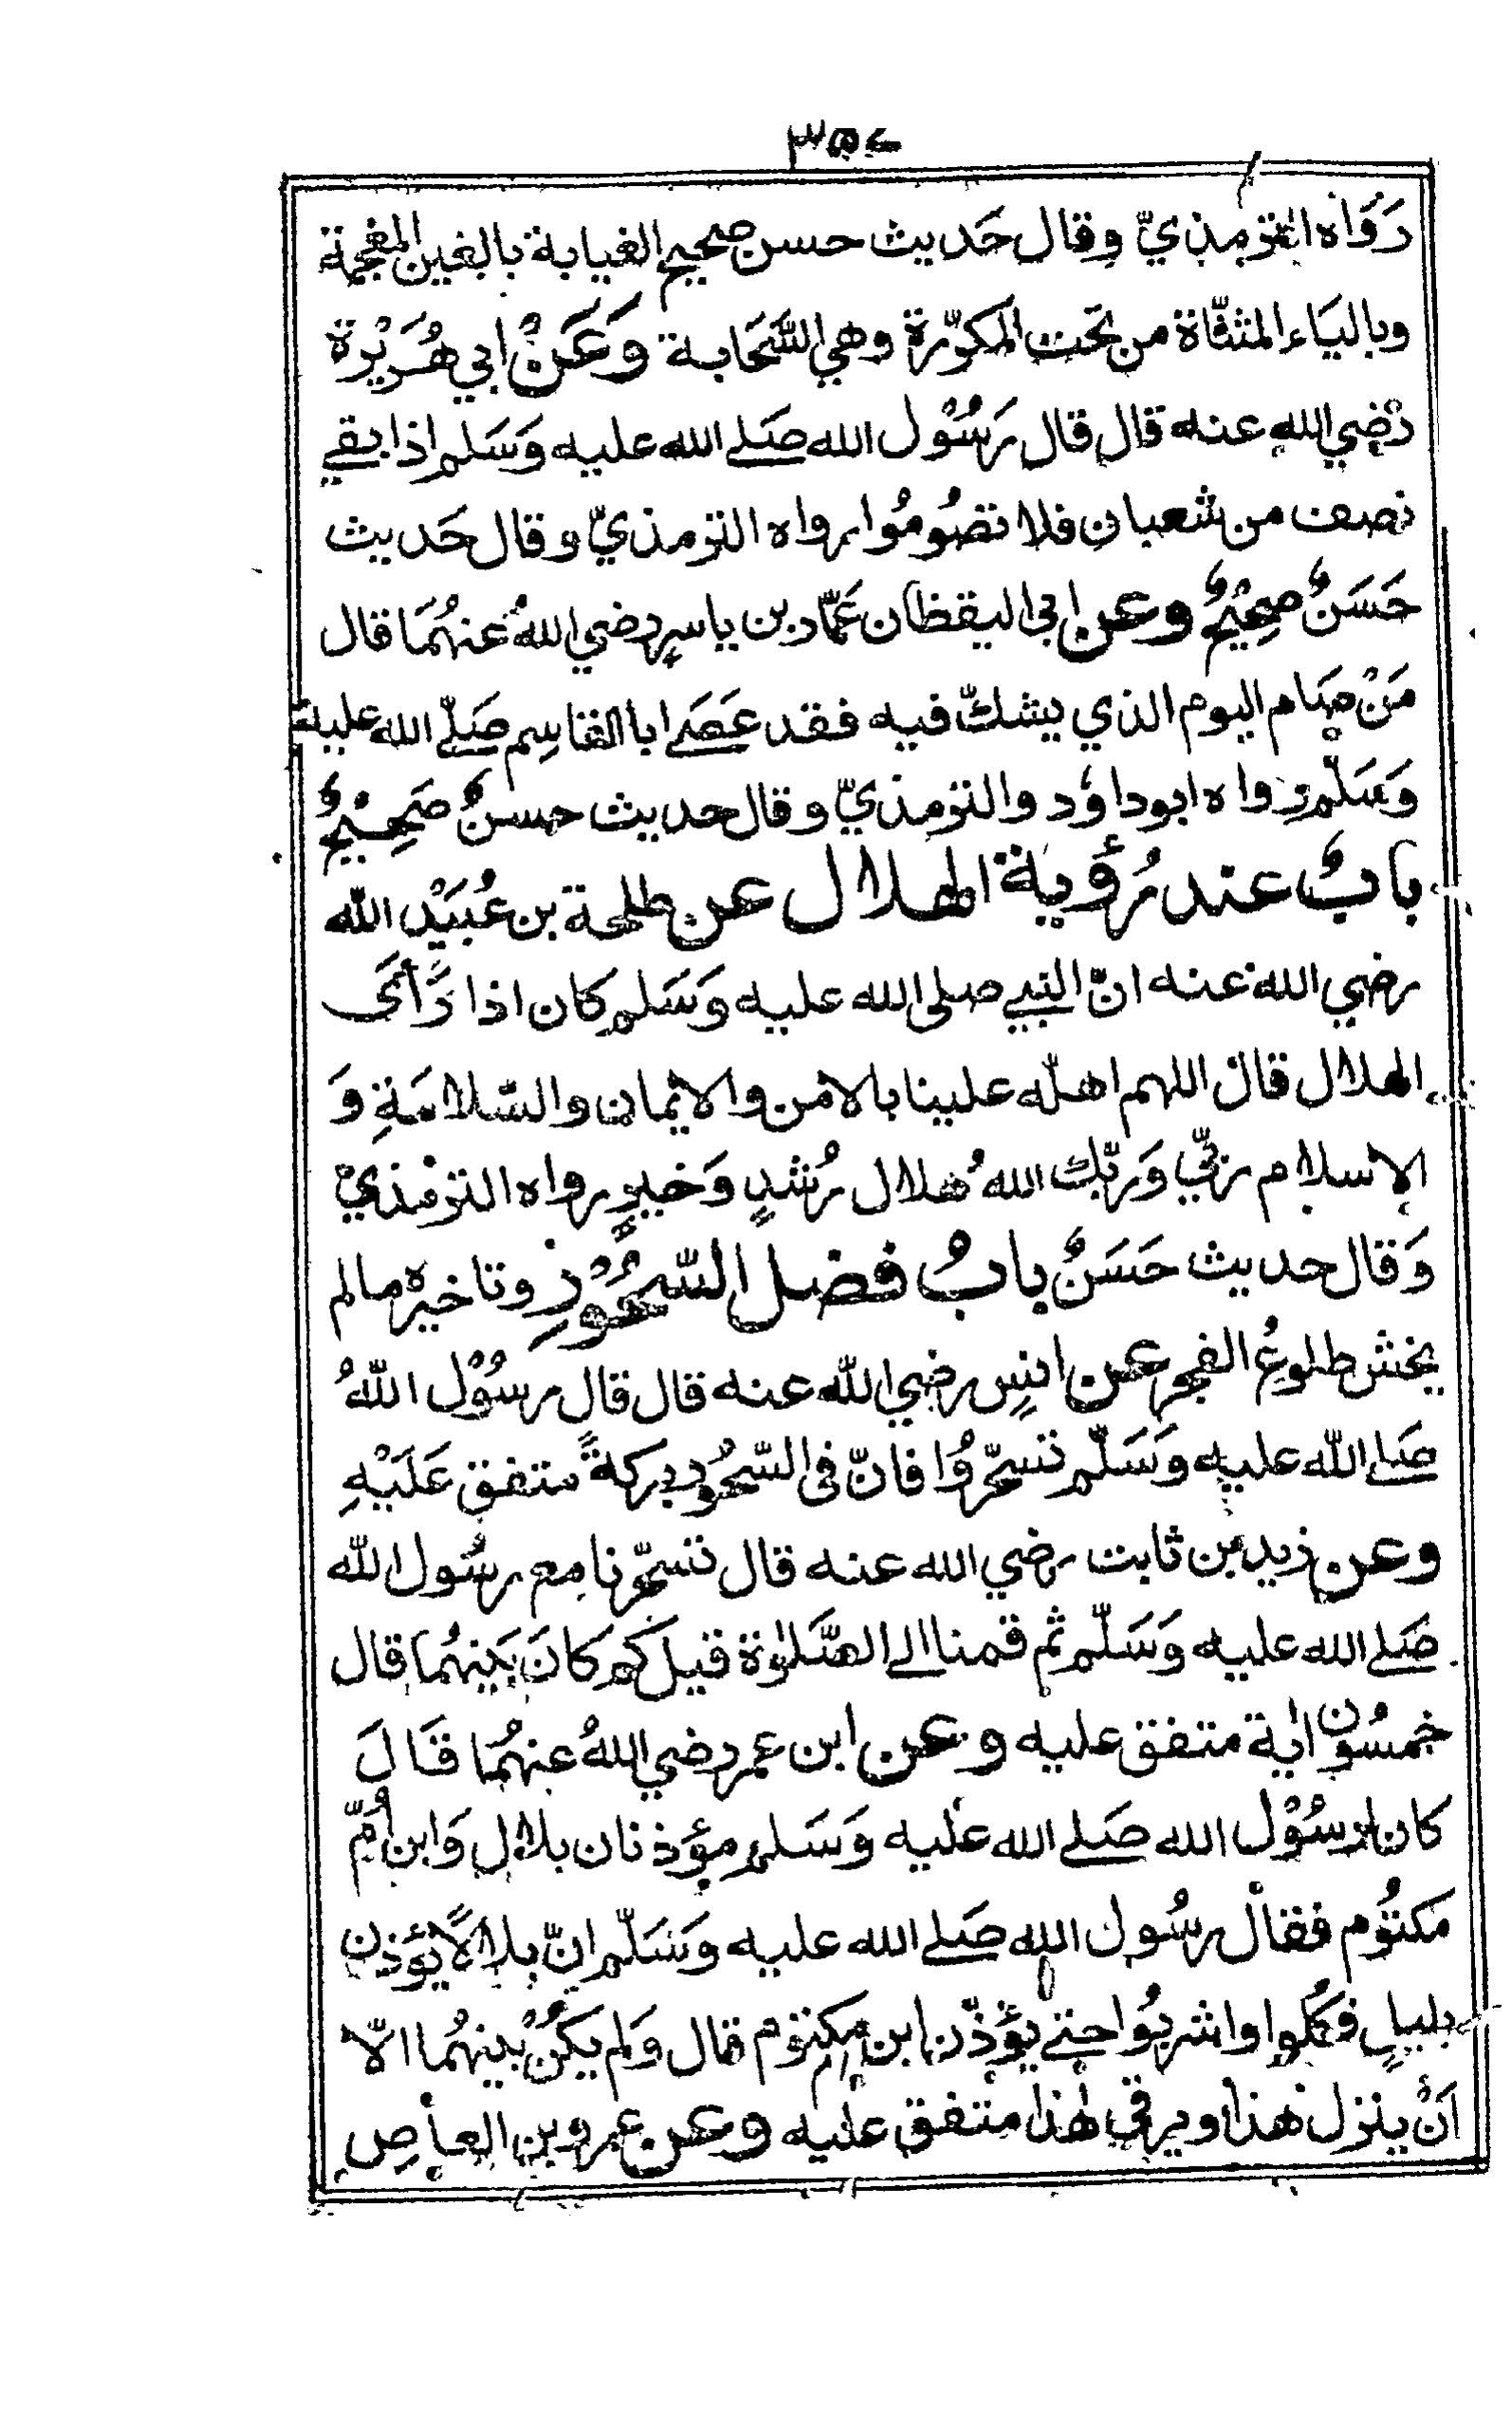 رَوَاه الترمذيّ وقال حَديث حسن صحيح الغيابة بالغين المعجمة
وبالياء المثنّاة من تحت المكرّرة وهي السَّحَابة وَعَنْ ابي هُرَيْرة
رضي الله عنه قال قال رَسُوْل الله صَلے الله عليه وَسَلم اذا بقے
نصف من شعبان فلا تصُومُوا رواه الترمذيّ وقال حَديث
حَسَنٌ صحِيْحٌ وعن ابي اليقظان عَمّار بن ياسر رضي اللهُ عنهُمَا قال
مَنْ صَام اليوم الذي يشكّ فيه فقد عَصَے ابا القاسِم صَلّے الله عليه
وَسَلّم رواه ابو داوٗد والترمذيّ وقال حديث حسنٌ صَحِيْحٌ
بابٌ عند رُؤية الهلال عن طلحة بن عُبَيْد الله
رضي الله عنه انّ النبے صلى الله عليه وَسَلم كان اذا رَأَى
الهلال قال اللهم اهلّه علينا بالامن والايمان والسّلامَةِ وَ
الاسلام ربّي وَربّك اللهُ هلال رُشدٍ وَخيرٍ رواه الترمذيّ
وَقال حديث حَسَنٌ بابُ فضل السّحُوْرِ وتاخيره مالم
يخش طلوعُ الفجر عن انسٍ رضي الله عنه قال قال رسُوْل اللهُ
صَلے الله عليه وَسَلّم تسحّرُوا فانّ في السّحُور بركةً متفق عَلَيْهِ
وعن زيد بن ثابت رضي الله عنه قال تسحّرنا مع رسُول الله
صَلے الله عليه وَسَلّم ثم قمنا الے الصَّلوٰة قيل كم كانَ بَينهُما قال
خمسُون اٰية متفق عليه وعن ابن عمر رضي اللهُ عنهُما قَالَ
كان لرسُوْل الله صَلے الله عليه وَسَلم مؤذنان بلال وَابن اُمّ
مكتوُم فقال رسُول الله صَلے الله عليه وَسَلّم انّ بلالًا يؤذن
بليلٍ فكُلوا واشربُوا حتے يؤذّن ابن ام مكتوم قال وَلم يكُنْ بينهُما الّا
اَنْ ينزل هٰذا ويرقي هٰذا متفق عليه وعن عمرو بن العاصِ